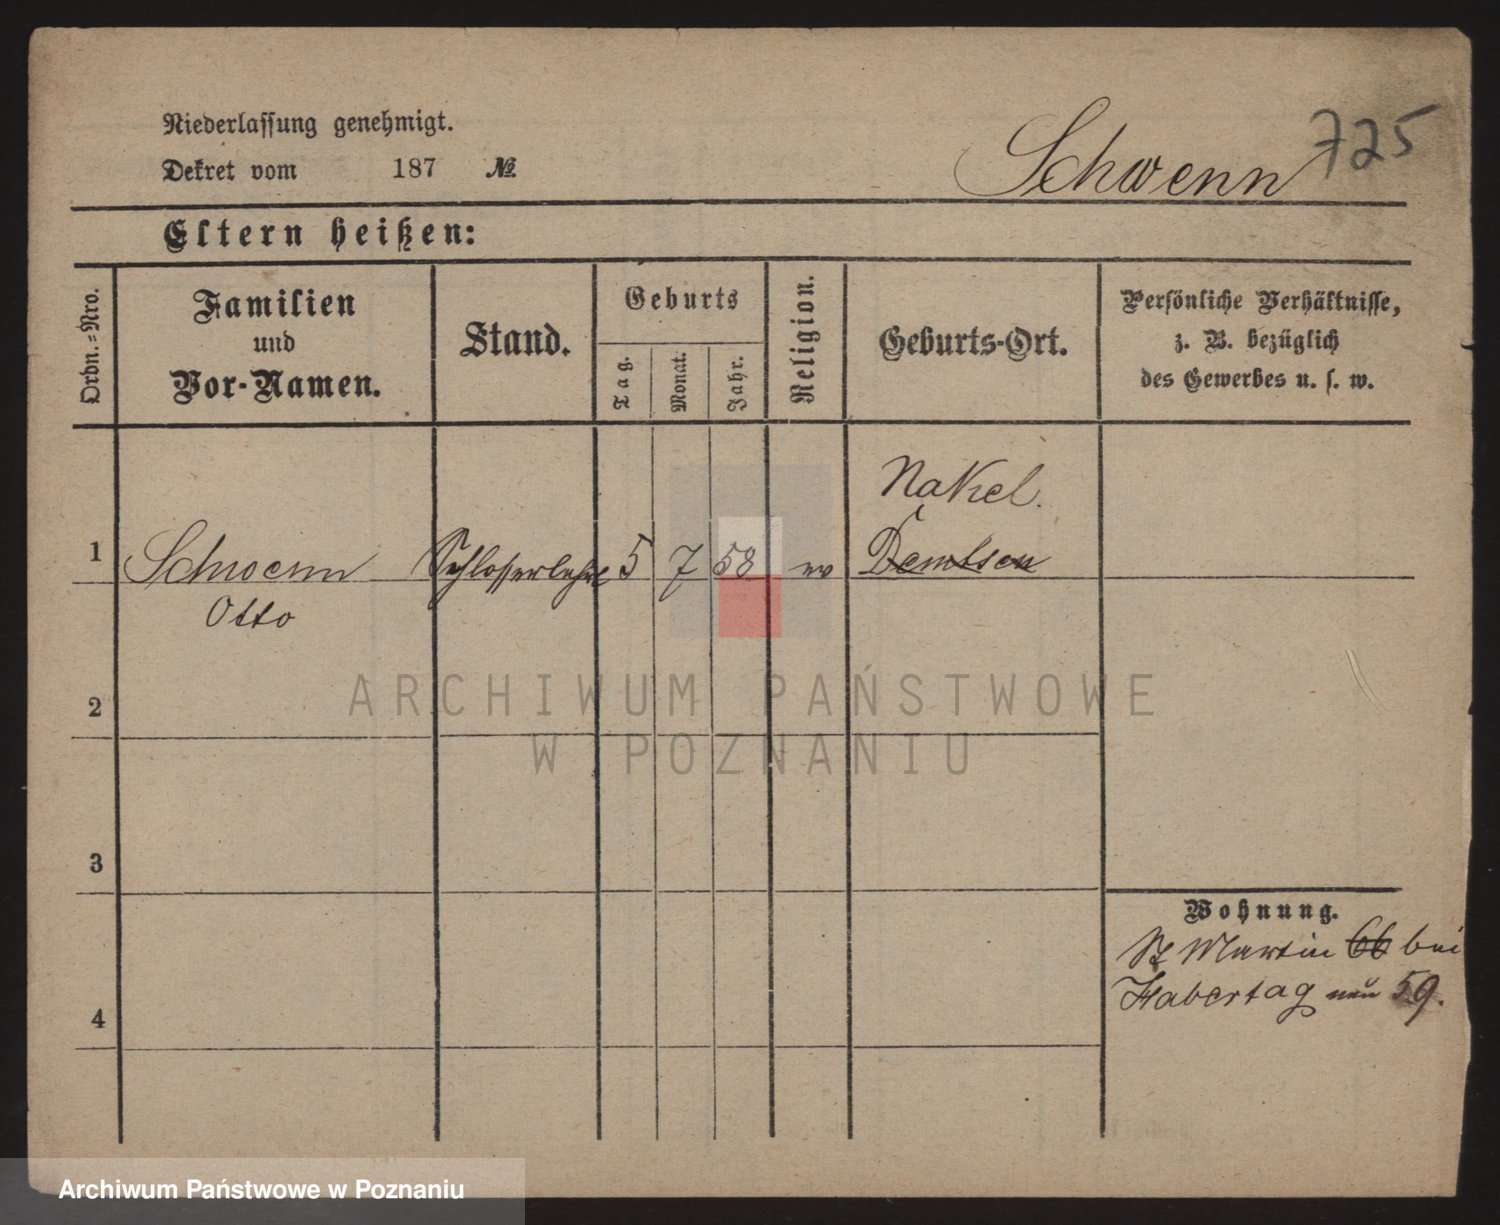 Niederlassung genehmigt.
Dekret vom 187 №
Schwenn 725
Eltern heißen:
Ordn.=Nro.
Familien
und
Vor-Namen.
Stand.
Geburts
Tag.
Monat.
Jahr.
Religion.
Geburts-Ort.
Persönliche Verhältnisse,
z. B. bezüglich
des Gewerbes u. s. w.
Nakel.
1 Schwenn Schlosserlehrl 5 7 58
Otto
2
3
4
Wohnung.
St Martin 66 bei
Habertag neu 59.
ARCHIWUM PAŃSTWOWE
W POZNANIU
Archiwum Państwowe w Poznaniu